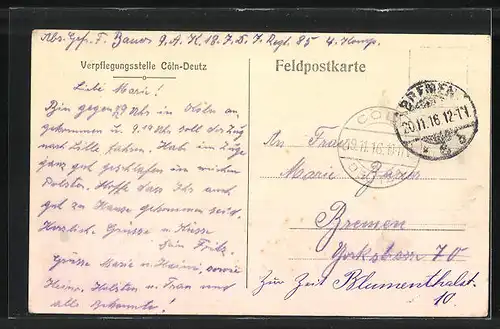 Abs. Gefr. F. Bauer 9. A. K. 18. I. D. I. Regt. 85 4. Komp.
Verpflegungsstelle Cöln-Deutz
Feldpostkarte
Liebe Marie!
Bin gegen 8 Uhr in Cöln an-
gekommen u. 9.19 Uhr soll der Zug
nach Lille fahren. Hab im Zuge
ganz gut geschlafen im weichen
Polster. Hoffe dass Ihr auch
gut zu Hause gekommen seid.
Herzlich. Grüsse u. Küsse
Dein Fritz.
Grüsse Marie u. Heini, sowie
Heinr. Holsten u. Frau und
alle Bekannte!
BREMEN
20.11.16. 12-1
CÖLN
19.11.16.
An Frau
Marie Bauer
Bremen
Yorkstrasse 70
Zur Zeit Blumenthalst.
10.